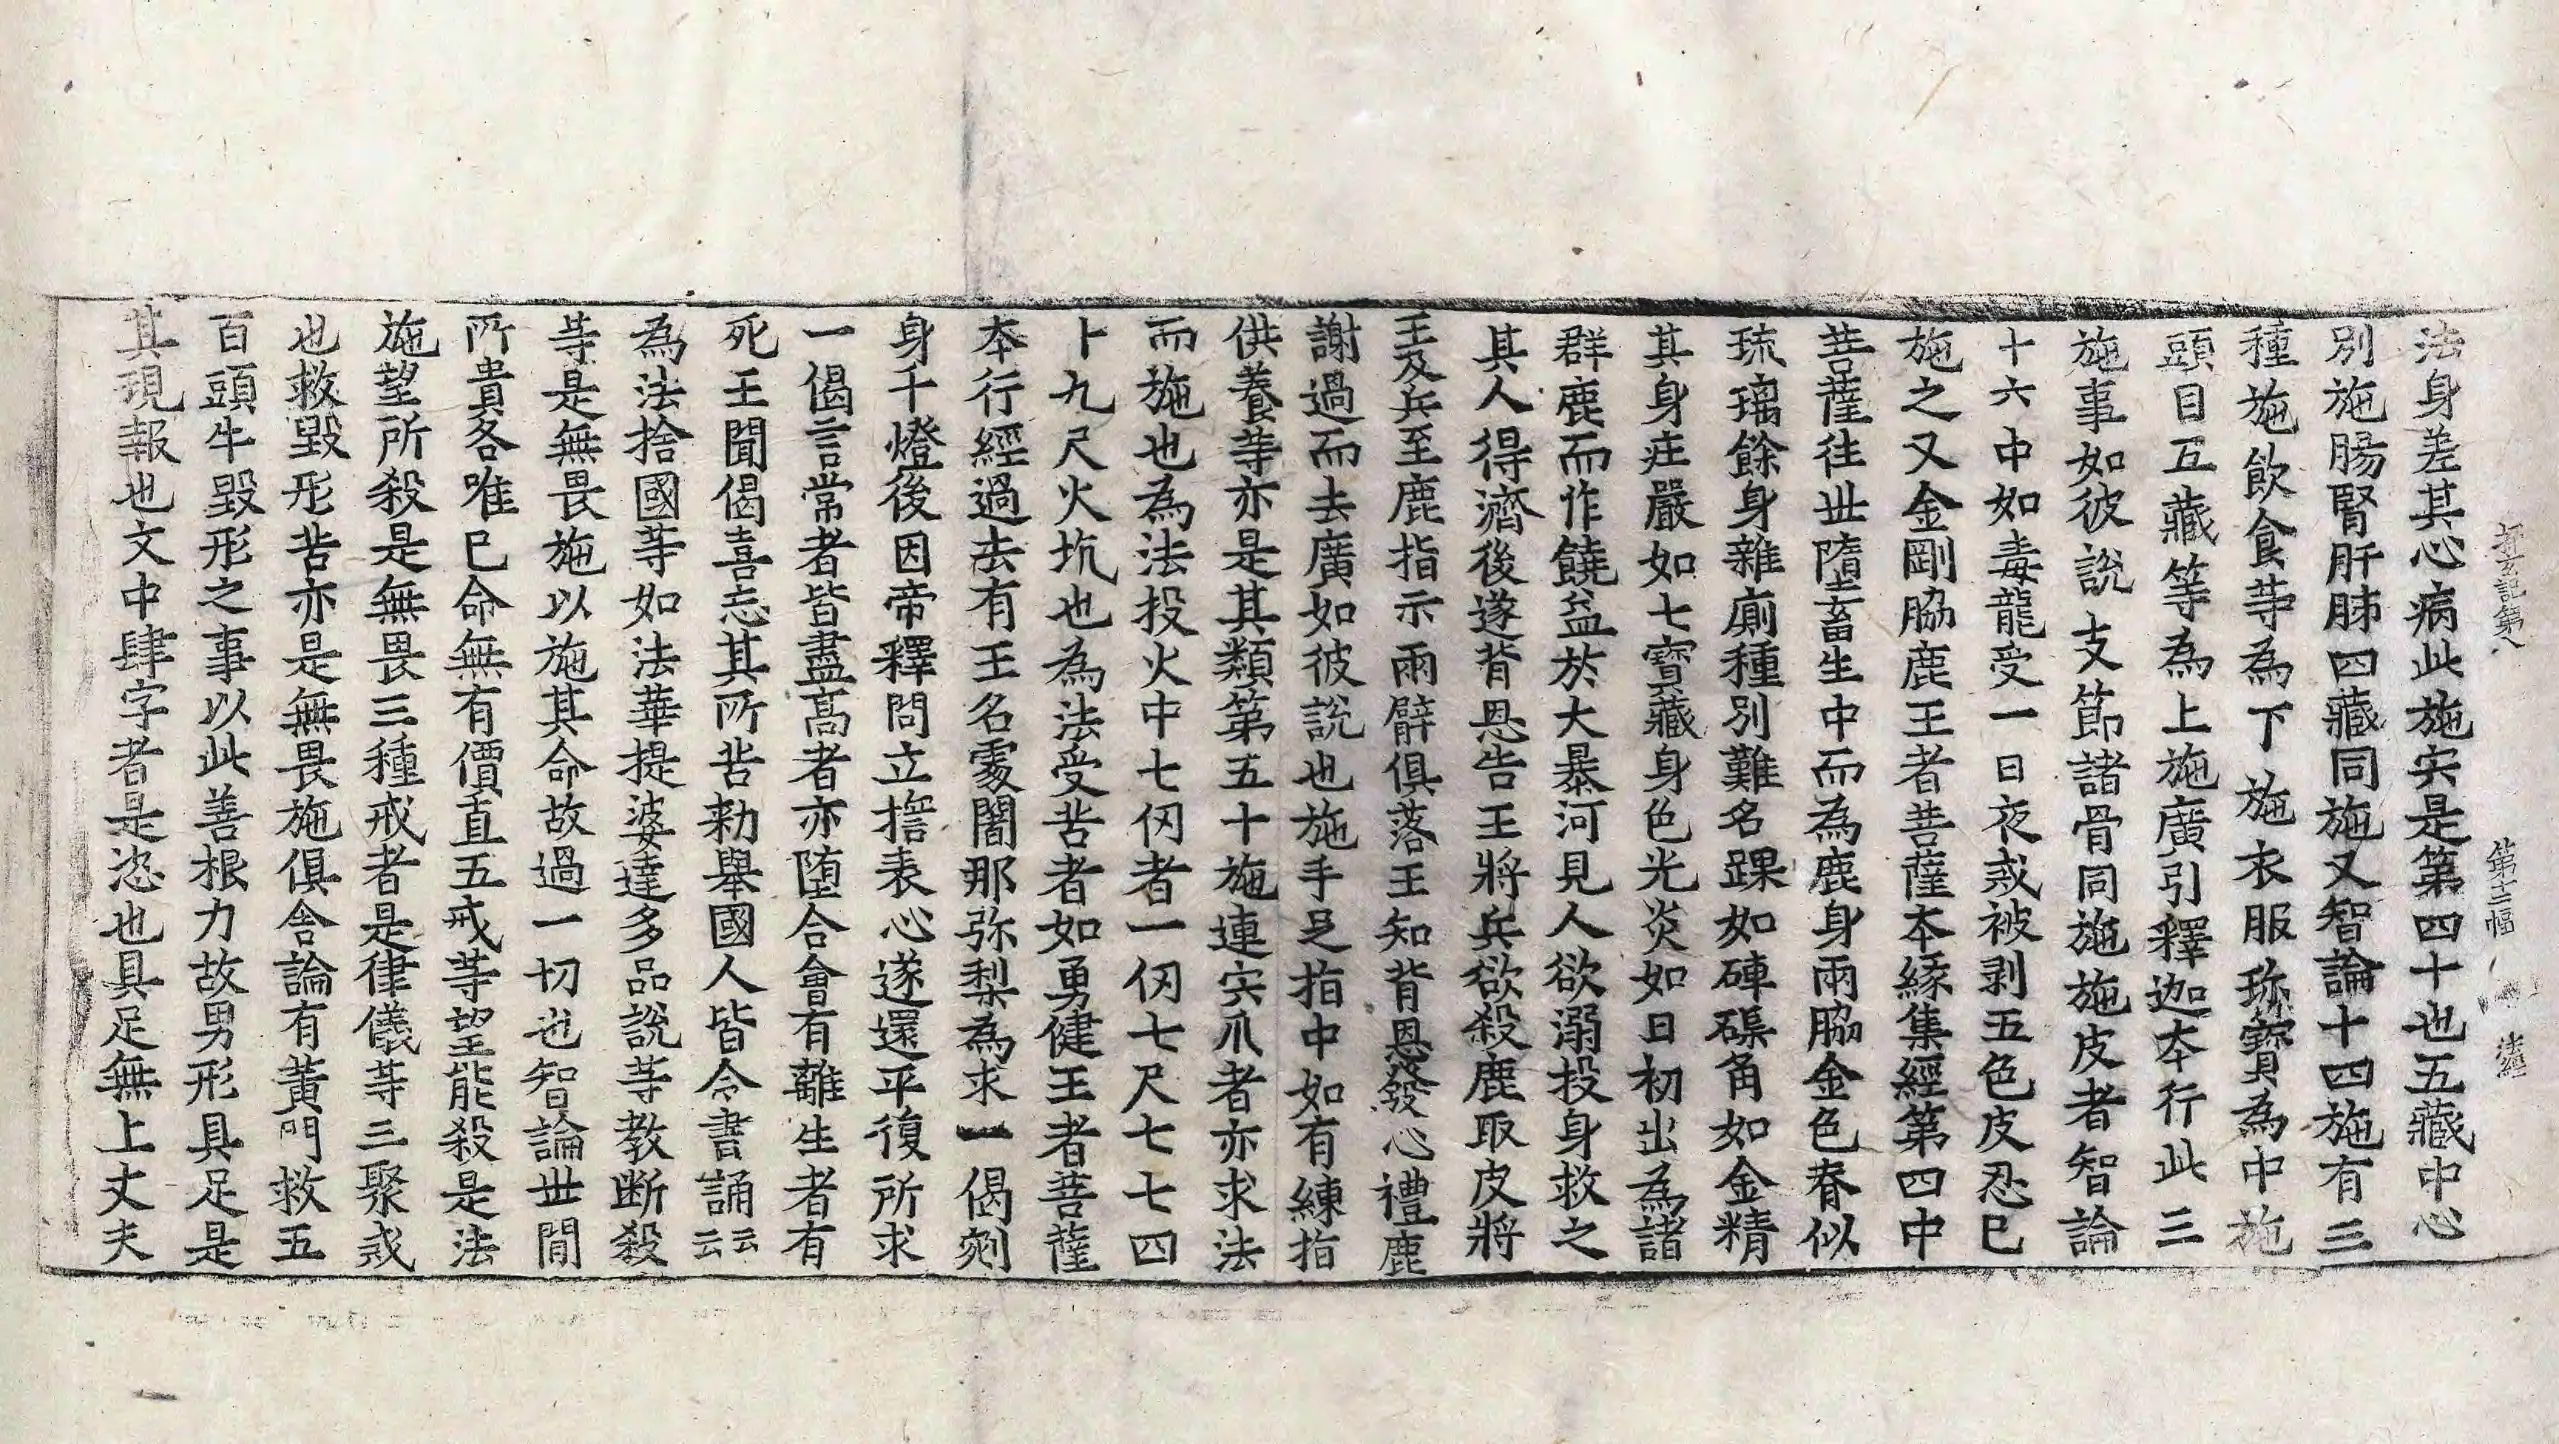 法身差其心病此施实是第四十也五藏中心
別施腸腎肝肺四藏同施又智論十四施有三
種施飲食䓁為下施衣服珎寶為中施
頭目五藏等為上施廣引釋迦夲行此三
施事如彼說支節諸骨同施施皮者智論
十六中如毒龍受一日夜戒被剥五色皮忍巳
施之又金剛脇鹿王者菩薩夲緣集經第四中
菩薩往丗墮畜生中而為鹿身兩脇金色脊似
琉璃餘身雜廁種別難名踝如硨磲角如金精
其身疰嚴如七寶藏身色光炎如日初出為諸
群鹿而作饒益於大暴河見人欲溺投身救之
其人得濟後遂背恩告王將兵欲殺鹿取皮將
王及兵至鹿指示兩臂俱落王知背恩發心禮鹿
謝過而去廣如彼說也施手足指中如有練指
供養䓁亦是其類第五十施連实爪者亦求法
而施也為法投火中七仞者一仞七尺七七四
卜九尺火坑也為法受苦者如勇健王者菩薩
夲行經過去有王名䖍闍那弥梨為求一偈剜
身千燈後因帝釋問立擔表心遂還平復所求
一偈言常者皆盡髙者亦墮合會有離生者有
死王聞偈喜忘其所苦勑舉國人皆令書誦云云
為法捨國䓁如法華提婆達多品說等教断殺
䓁是無畏施以施其命故過一切也智論丗間
所貴各唯巳命無有價直五戒䓁望能殺是法
施望所殺是無畏三種戒者是律儀䓁三聚戒
也救毀形苦亦是無畏施俱舍論有黃門救五
百頭牛毀形之事以此善根力故男形具足是
其現報也文中肆字者是恣也具足無上丈夫
第八
第十三幅